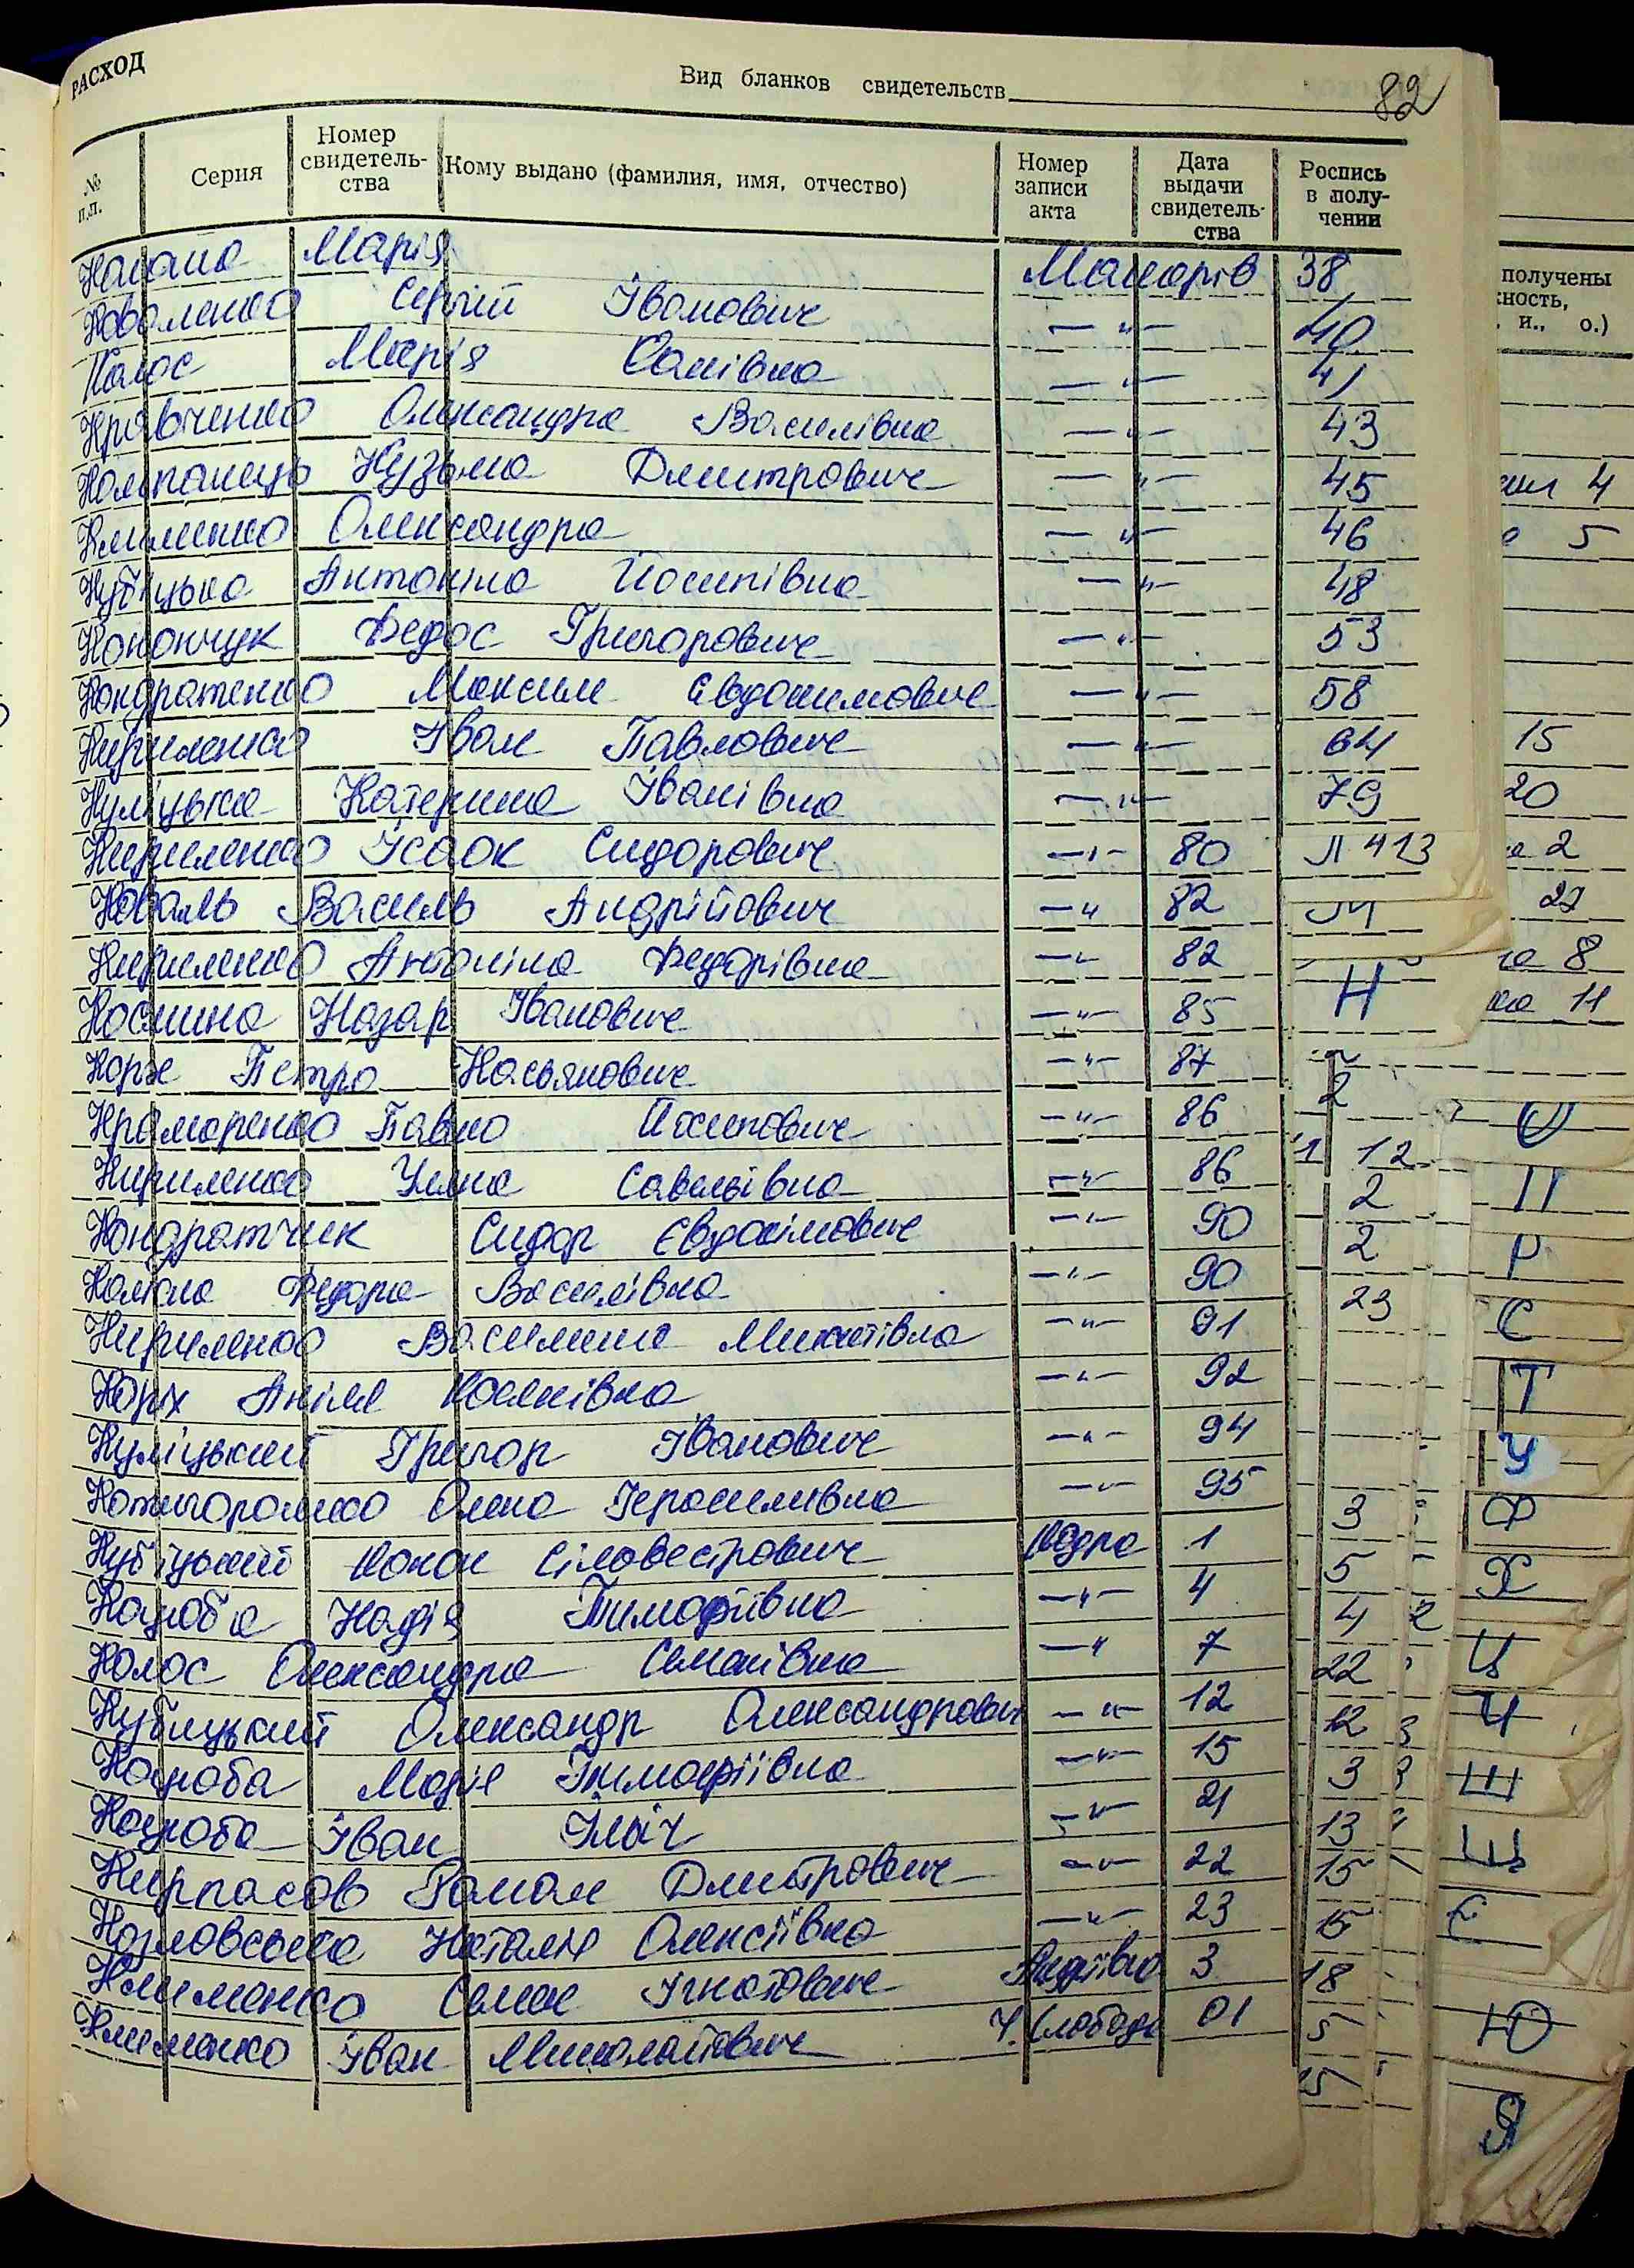 РАСХОД
Вид бланков свидетельств
82
№ п.п. Серия Номер свидетельства Кому выдано (фамилия, имя, отчество) Номер записи акта Дата выдачи свидетельства Роспись в получении
Марія Макарів 38
Коваленко Сергій Іванович —"— 40
Колос Марія Санівна —"— 41
Кравченко Олександра Василівна —"— 43
Компанець Кузьма Дмитрович —"— 45
Клименко Олександра —"— 46
Кубіцька Антоніна Йосипівна —"— 48
Конончук Федос Григорович —"— 53
Кондратенко Максим Євдокимович —"— 58
Кириленко Іван Павлович —"— 64
Куліцька Катерина Іванівна —"— 79
Кириленко Ісаок Сидорович —"— 80
Коваль Василь Андрійович —"— 82
Кириленко Антоніна Федорівна —"— 82
Космина Назар Іванович —"— 85
Корж Петро Касьянович —"— 87
Краморенко Павло Йосипович —"— 86
Кириленко Уляна Савельівна —"— 86
Кондратчик Сидор Євдокімович —"— 90
Федора Василівна —"— 90
Кириленко Василина Микитівна —"— 91
Корж —"— 92
Куліцький Григор Іванович —"— 94
Котигорошко Олена Герасимівна —"— 95
Кубіцький Конон Сільвестрович Кодра 1
Коцюба Надія Тимофіївна —"— 4
Колос Олександра Семенівна —"— 7
Кубіцький Олександр Олександрович —"— 12
Коцюба Марія Тимофіївна —"— 15
Коцюба Іван Ілліч —"— 21
Кирпасов Роман Дмитрович —"— 22
Козловська Наталія Олексіївна —"— 23
Клименко Семен Ігнатович Андріївка 3
Клименко Іван Миколайович Ч. Слобода 01
получены
и., о.)
4
5
15
20
Л 413
2
М
27
8
Н
11
О
П
Р
С
Т
У
Ф
Х
Ц
Ч
Ш
Щ
Є
Ю
Я